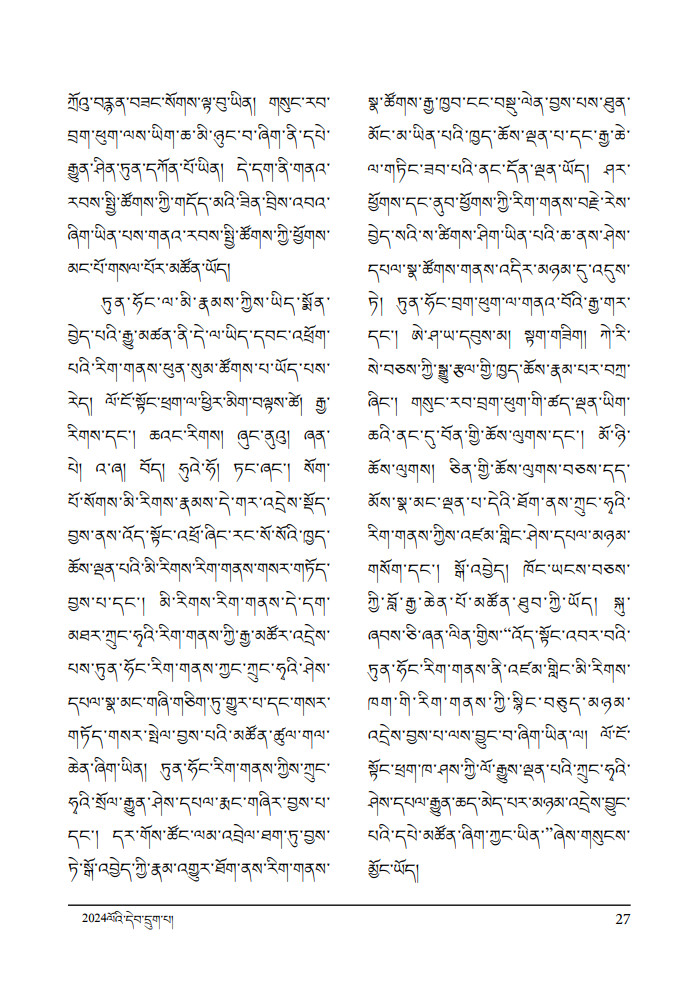 ཀྲོའུ་བརྙན་བཟང་སོགས་ལྟ་བུ་ཡིན། གསུང་རབ་
བྲག་ཕུག་ལས་ཡིག་ཆ་མི་ཉུང་བ་ཞིག་ནི་དཔེ་
རྒྱུན་ཤིན་ཏུན་དཀོན་པོ་ཡིན། དེ་དག་ནི་གནའ་
རབས་སྤྱི་ཚོགས་ཀྱི་གདོད་མའི་ཟིན་བྲིས་འབའ་
ཞིག་ཡིན་པས་གནའ་རབས་སྤྱི་ཚོགས་ཀྱི་ཕྱོགས་
མང་པོ་གསལ་པོར་མཚོན་ཡོད།
ཏུན་ཧོང་ལ་མི་རྣམས་ཀྱིས་ཡིད་སྨོན་
བྱེད་པའི་རྒྱུ་མཚན་ནི་དེ་ལ་ཡིད་དབང་འཕྲོག་
པའི་རིག་གནས་ཕུན་སུམ་ཚོགས་པ་ཡོད་པས་
རེད། ལོ་ངོ་སྟོང་ཕྲག་ལ་ཕྱིར་མིག་བལྟས་ཚེ། རྒྱ་
རིགས་དང་། ཆའང་རིགས། ཞུང་ནུའུ། ཞན་
པེ། འ་ཞ། བོད། ཧུའེ་ཧོ། ཏང་ཞང་། སོག་
པོ་སོགས་མི་རིགས་རྣམས་དེ་གར་འདྲེས་སྡོད་
བྱས་ནས་འོད་སྟོང་འཕྲོ་ཞིང་རང་སོ་སོའི་ཁྱད་
ཆོས་ལྡན་པའི་མི་རིགས་རིག་གནས་གསར་གཏོད་
བྱས་པ་དང་། མི་རིགས་རིག་གནས་དེ་དག་
མཐར་ཀྲུང་ཧྭའི་རིག་གནས་ཀྱི་རྒྱ་མཚོར་འདྲེས་
པས་ཏུན་ཧོང་རིག་གནས་ཀྱང་ཀྲུང་ཧྭའི་ཤེས་
དཔལ་སྣ་མང་གཞི་གཅིག་ཏུ་གྱུར་པ་དང་གསར་
གཏོད་གསར་སྤེལ་བྱས་པའི་མཚོན་ཚུལ་གལ་
ཆེན་ཞིག་ཡིན། ཏུན་ཧོང་རིག་གནས་ཀྱིས་ཀྲུང་
ཧྭའི་སྲོལ་རྒྱུན་ཤེས་དཔལ་རྨང་གཞིར་བྱས་པ་
དང་། དར་གོས་ཚོང་ལམ་འབྲེལ་ཐག་ཏུ་བྱས་
ཏེ་སྒོ་འབྱེད་ཀྱི་རྣམ་འགྱུར་ཐོག་ནས་རིག་གནས་
སྣ་ཚོགས་རྒྱ་ཁྱབ་ངང་བསྡུ་ལེན་བྱས་པས་ཐུན་
མོང་མ་ཡིན་པའི་ཁྱད་ཆོས་ལྡན་པ་དང་རྒྱ་ཆེ་
ལ་གཏིང་ཟབ་པའི་ནང་དོན་ལྡན་ཡོད། ཤར་
ཕྱོགས་དང་ནུབ་ཕྱོགས་ཀྱི་རིག་གནས་བརྗེ་རེས་
བྱེད་སའི་ས་ཚིགས་ཤིག་ཡིན་པའི་ཆ་ནས་ཤེས་
དཔལ་སྣ་ཚོགས་གནས་འདིར་མཉམ་དུ་འདུས་
ཏེ། ཏུན་ཧོང་བྲག་ཕུག་ལ་གནའ་བོའི་རྒྱ་གར་
དང་། ཨེ་ཤ་ཡ་དབུས་མ། སྟག་གཟིག། ཀེ་རི་
སེ་བཅས་ཀྱི་སྒྱུ་རྩལ་གྱི་ཁྱད་ཆོས་རྣམ་པར་བཀྲ་
ཞིང་། གསུང་རབ་བྲག་ཕུག་གི་ཚད་ལྡན་ཡིག་
ཆའི་ནང་དུ་བོན་གྱི་ཆོས་ལུགས་དང་། མོ་ཉི་
ཆོས་ལུགས། ཅིན་གྱི་ཆོས་ལུགས་བཅས་དད་
མོས་སྣ་མང་ལྡན་པ་དེའི་ཐོག་ནས་ཀྲུང་ཧྭའི་
རིག་གནས་ཀྱིས་འཛམ་གླིང་ཤེས་དཔལ་མཉམ་
གསོག་དང་། སྒོ་འབྱེད། ཁོང་ཡངས་བཅས་
ཀྱི་བློ་རྒྱ་ཆེན་པོ་མཚོན་ཐུབ་ཀྱི་ཡོད། སྐུ་
ཞབས་ཅི་ཞན་ལིན་གྱིས་“འོད་སྟོང་འབར་བའི་
ཏུན་ཧོང་རིག་གནས་ནི་འཛམ་གླིང་མི་རིགས་
ཁག་གི་རིག་གནས་ཀྱི་སྙིང་བཅུད་མཉམ་
འདྲེས་བྱས་པ་ལས་བྱུང་བ་ཞིག་ཡིན་ལ། ལོ་ངོ་
སྟོང་ཕྲག་ཁ་ཤས་ཀྱི་ལོ་རྒྱུས་ལྡན་པའི་ཀྲུང་ཧྭའི་
ཤེས་དཔལ་རྒྱུན་ཆད་མེད་པར་མཉམ་འདྲེས་བྱུང་
པའི་དཔེ་མཚོན་ཞིག་ཀྱང་ཡིན་”ཞེས་གསུངས་
མྱོང་ཡོད།
2024ལོའི་དེབ་དྲུག་པ།
27